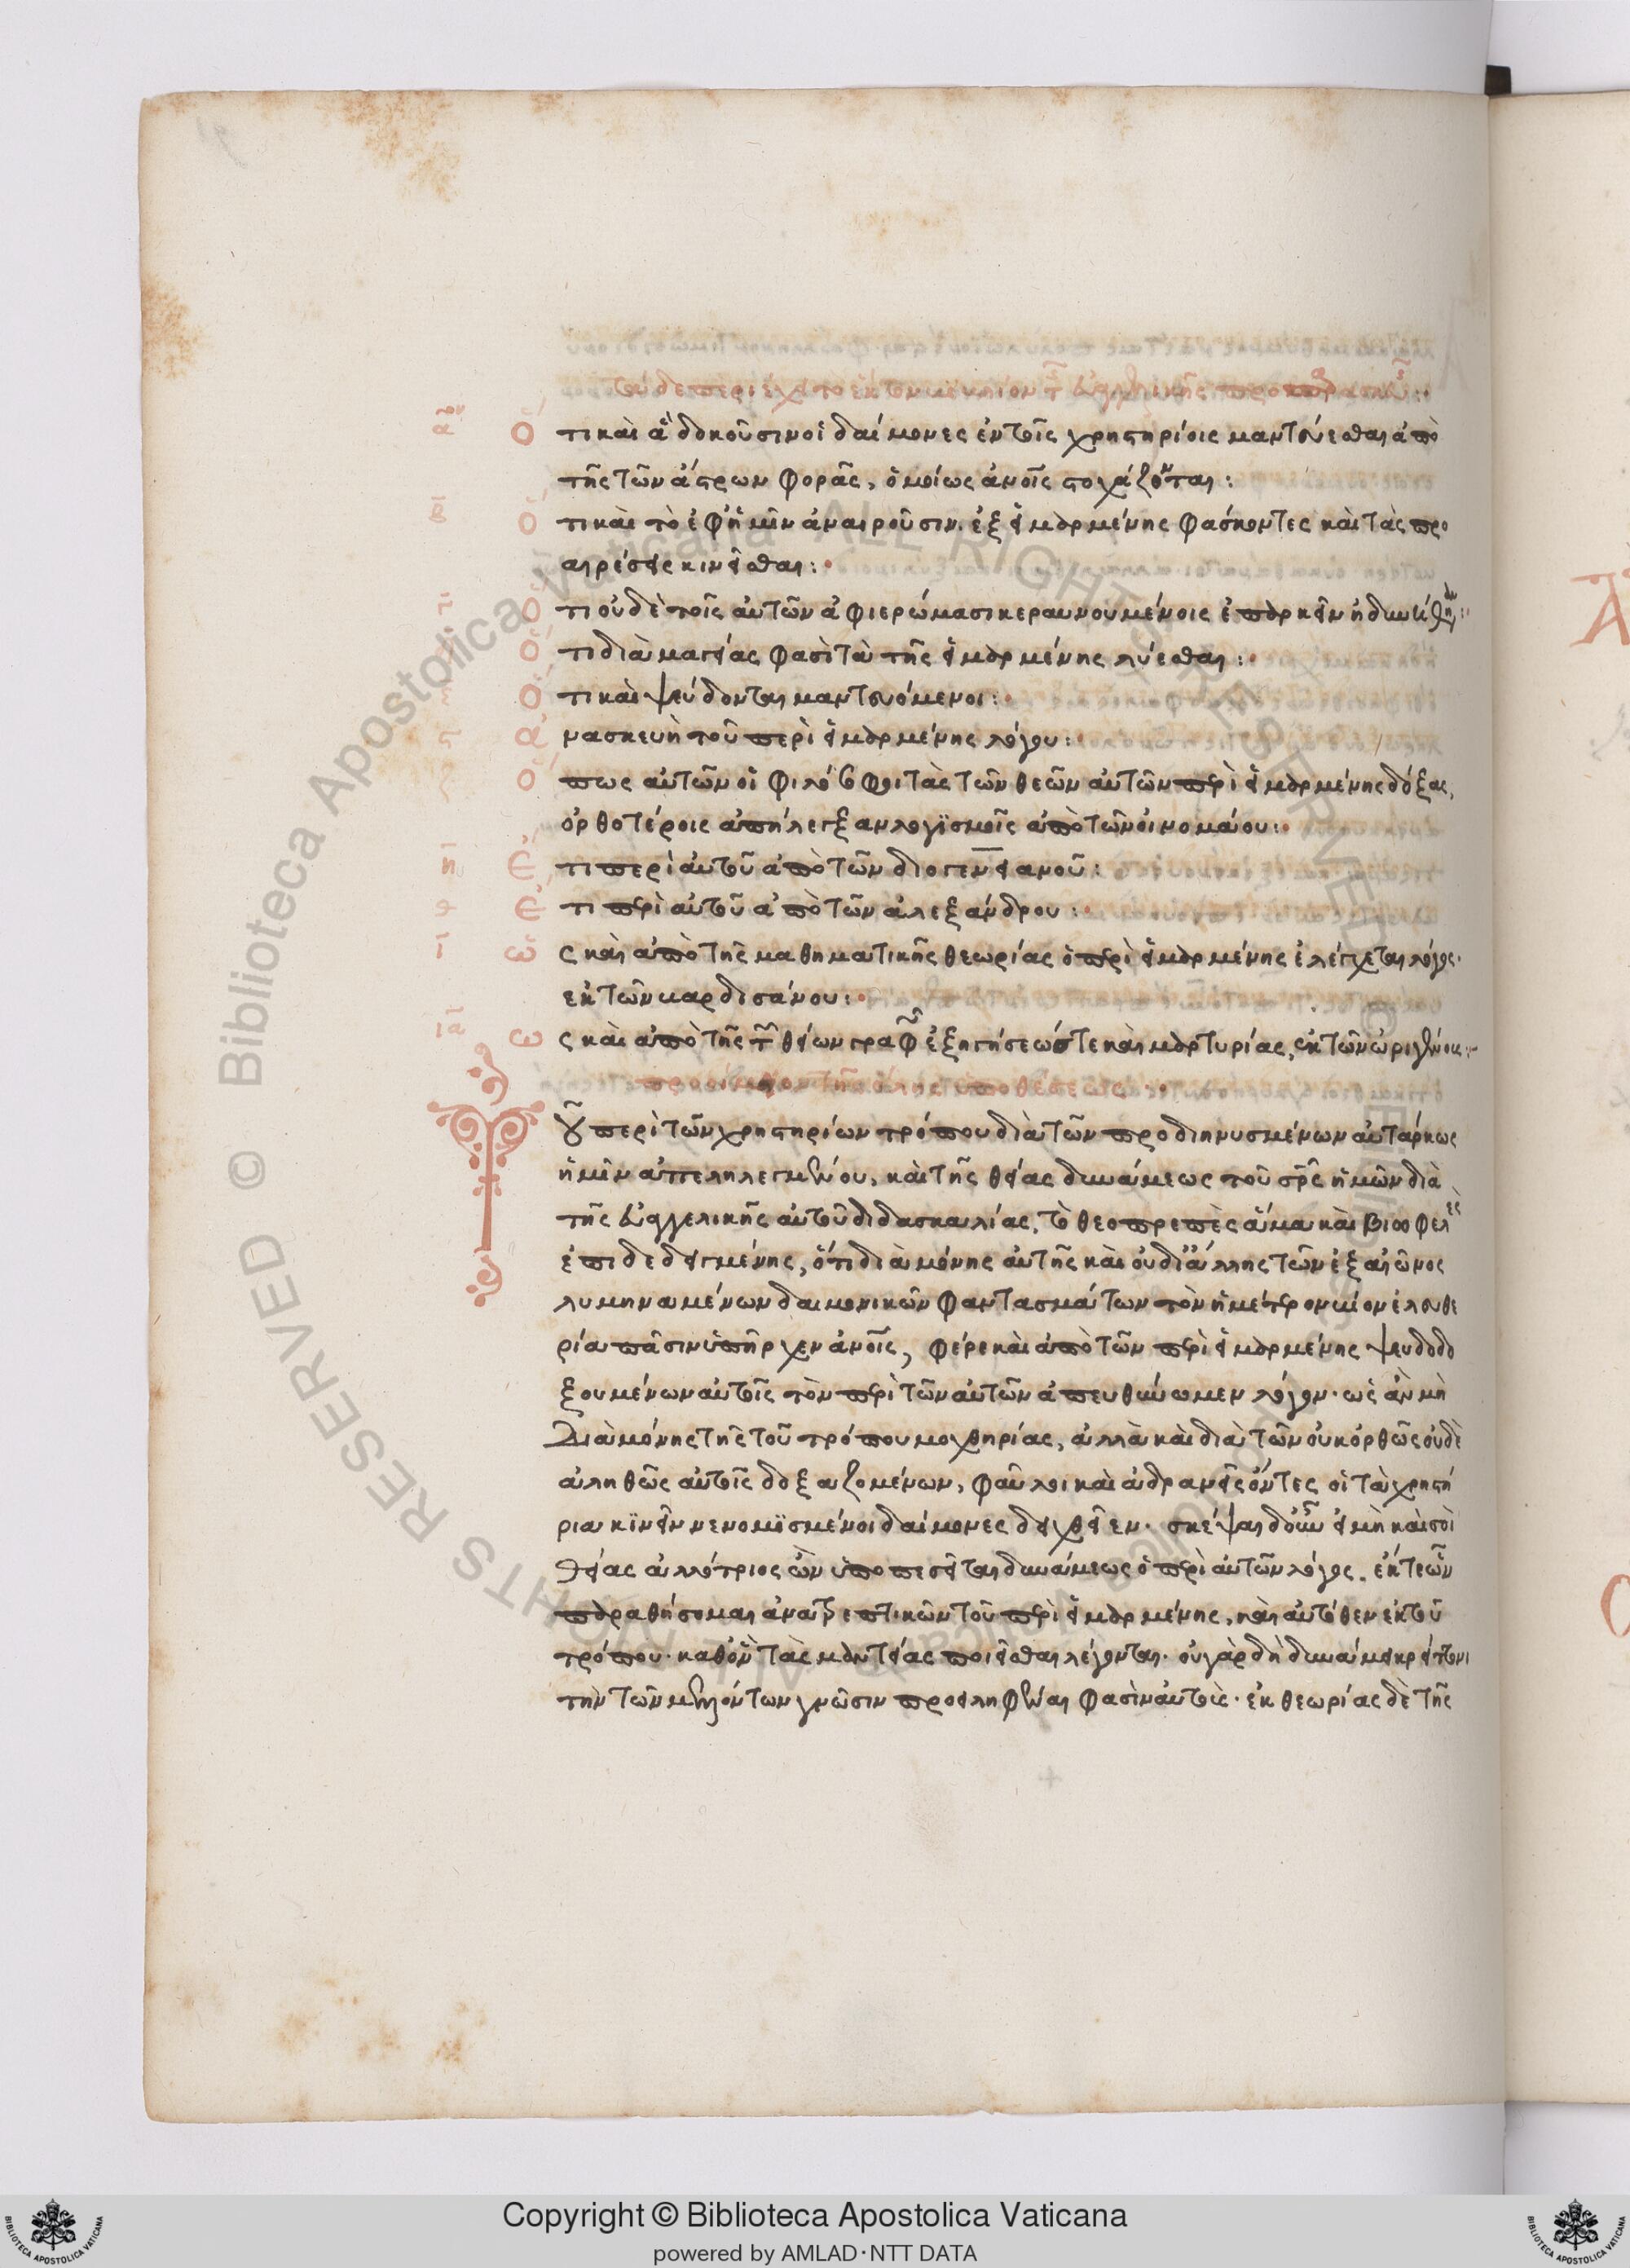 τάδε περιέχει τὸ ἕκτον βιβλίον τῆς εὐαγγελικῆς προπαρασκευῆς:
α Ὅτι καὶ ἃ δοκοῦσιν οἱ δαίμονες ἐν τοῖς χρηστηρίοις μαντεύεσθαι ἀπὸ
τῆς τῶν ἄστρων φορᾶς, ὁμοίως ἀνοῖς στοχάζονται:
β Ὅτι καὶ τὸ ἐφ' ἡμῖν ἀναιροῦσιν. ἐξ εἱμαρμένης φάσκοντες καὶ τὰς προ
αιρέσεις κινεῖσθαι:
γ Ὅτι οὐδὲ τοῖς αὐτῶν ἀφιερώμασι κεραυνουμένοις ἐπαρκεῖν ἠδυνήθησαν:
δ Ὅτι διὰ μαγείας φασὶ τὰ τῆς εἱμαρμένης λύεσθαι:
ε Ὅτι καὶ ψεύδονται μαντευόμενοι:
ς Ἀνασκευὴ τοῦ περὶ εἱμαρμένης λόγου:
ζ Ὅπως αὐτῶν οἱ φιλόσοφοι τὰς τῶν θεῶν αὐτῶν περὶ εἱμαρμένης δόξας,
ὀρθοτέροις ἀπήλεγξαν λογϊσμοῖς ἀπὸ τῶν οἰνομάου:
η Ἔτι περὶ αὐτοῦ ἀπὸ τῶν διογενειανοῦ:
θ Ἔτι περὶ αὐτοῦ ἀπὸ τῶν ἀλεξάνδρου:
ι Ὡς καὶ ἀπὸ τῆς μαθηματικῆς θεωρίας ὁ περὶ εἱμαρμένης ἐλέγχεται λόγος.
ἐκ τῶν βαρδισάνου:
ια Ὡς καὶ ἀπὸ τῆς τῶν θείων γραφῶν ἐξηγήσεώς τε καὶ μαρτυρίας, ἐκ τῶν ὠριγένους:
προοίμιον τῆς ὅλης ὑποθέσεως:
Τοῦ περὶ τῶν χρηστηρίων τρόπου διὰ τῶν προδιηνυσμένων αὐτάρκως
ἡμῖν ἀπεληλεγμένου, καὶ τῆς θείας δυνάμεως τοῦ σρς ἡμῶν διὰ
τῆς εὐαγγελικῆς αὐτοῦ διδασκαλίας, τὸ θεοπρεπὲς ἅμα καὶ βιωφελὲς
ἐπιδεδειγμένης, ὅτι διὰ μόνης αὐτῆς καὶ οὐ δι' ἄλλης τῶν ἐξ αἰῶνος
λυμηναμένων δαιμονικῶν φαντασμάτων τὸν ἡμέτερον βίον ἐλευθε
ρία πᾶσιν ὑπῆρχεν ἀνοῖς, φέρε καὶ ἀπὸ τῶν περὶ εἱμαρμένης ψευδοδο
ξουμένων αὐτοῖς τὸν περὶ τῶν αὐτῶν ἀπευθύνωμεν λόγον. ὡς ἂν μὴ
διὰ μόνης τῆς τοῦ τρόπου μοχθηρίας, ἀλλὰ καὶ διὰ τῶν οὐκ ὀρθῶς οὐδὲ
ἀληθῶς αὐτοῖς δοξαζομένων, φαῦλοι καὶ ἀδρανεῖς ὄντες οἱ τὰ χρηστή
ρια κϊνεῖν νενομϊσμένοι δαίμονες δειχθεῖεν. σκέψαι δ' οὖν εἰ μὴ καὶ σοὶ
θείας ἀλλότριος ὢν ὑποπεσεῖται δυνάμεως ὁ περὶ αὐτῶν λόγος. ἔκ τε ὧν
παραθήσομαι ἀναιρετικῶν τοῦ περὶ εἱμαρμένης, καὶ αὐτόθεν ἐκ τοῦ
τρόπου. καθ' ὃν τὰς μαντείας ποιεῖσθαι λέγονται. οὐ γὰρ δὴ δυνάμει κρείττονι
τὴν τῶν μελλόντων γνῶσιν προειληφέναι φασὶν αὐτοὺς. ἐκ θεωρίας δὲ τῆς
Copyright © Biblioteca Apostolica Vaticana
powered by AMLAD·NTT DATA